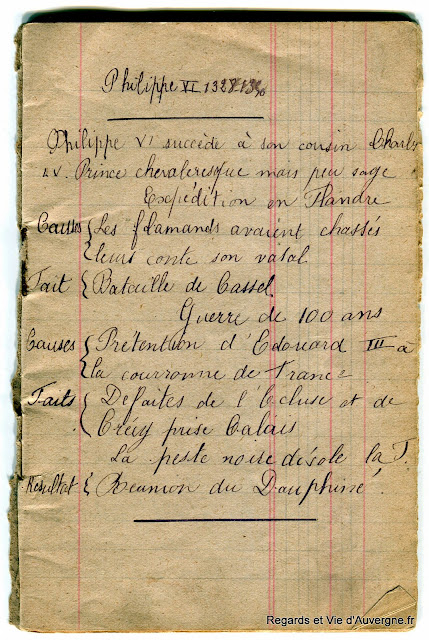 Philippe VI 1328-1350
Philippe VI succède à son cousin Charles
IV. Prince chevaleresque mais peu sage
Expédition en Flandre
Causes { Les flamands avaient chassés
leurs conte son vasal
Fait { Bataille de Cassel
Guerre de 100 ans
Causes { Prétention d'Edouard III à
la courronne de France
Faits { Défaites de l'Ecluse et de
Crécy prise Calais
La peste noire désole la F.
Résultat { Réunion du Dauphiné.
Regards et Vie d'Auvergne.fr